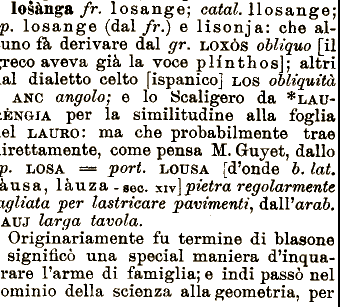 loṡànga fr. losange; catal. llosange;
p. losange (dal fr.) e lisonja: che al-
uno fà derivare dal gr. LOXÒS obliquo [il
reco aveva già la voce plínthos]; altri
al dialetto celto [ispanico] LOS obliquità
ANC angolo; e lo Scaligero da *LAU-
RÈNGIA per la similitudine alla foglia
el LAURO: ma che probabilmente trae
irettamente, come pensa M. Guyet, dallo
p. LOSA = port. LOUSA [d'onde b. lat.
àusa, làuza - sec. XIV] pietra regolarmente
agliata per lastricare pavimenti, dall'arab.
AUJ larga tavola.
Originariamente fu termine di blasone
significò una special maniera d'inqua-
rare l'arme di famiglia; e indi passò nel
ominio della scienza alla geometria, per